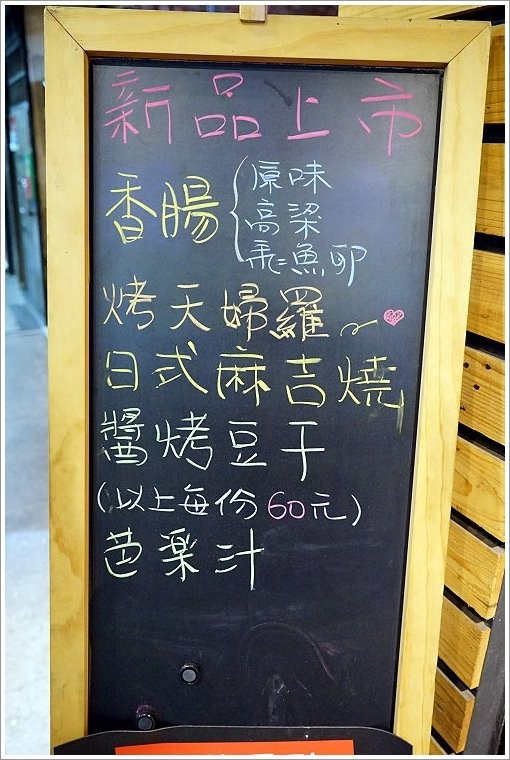 新品上市
香腸
原味
高梁
飛魚卵
烤天婦羅
日式麻吉燒
醬烤豆干
(以上每份60元)
芭樂汁